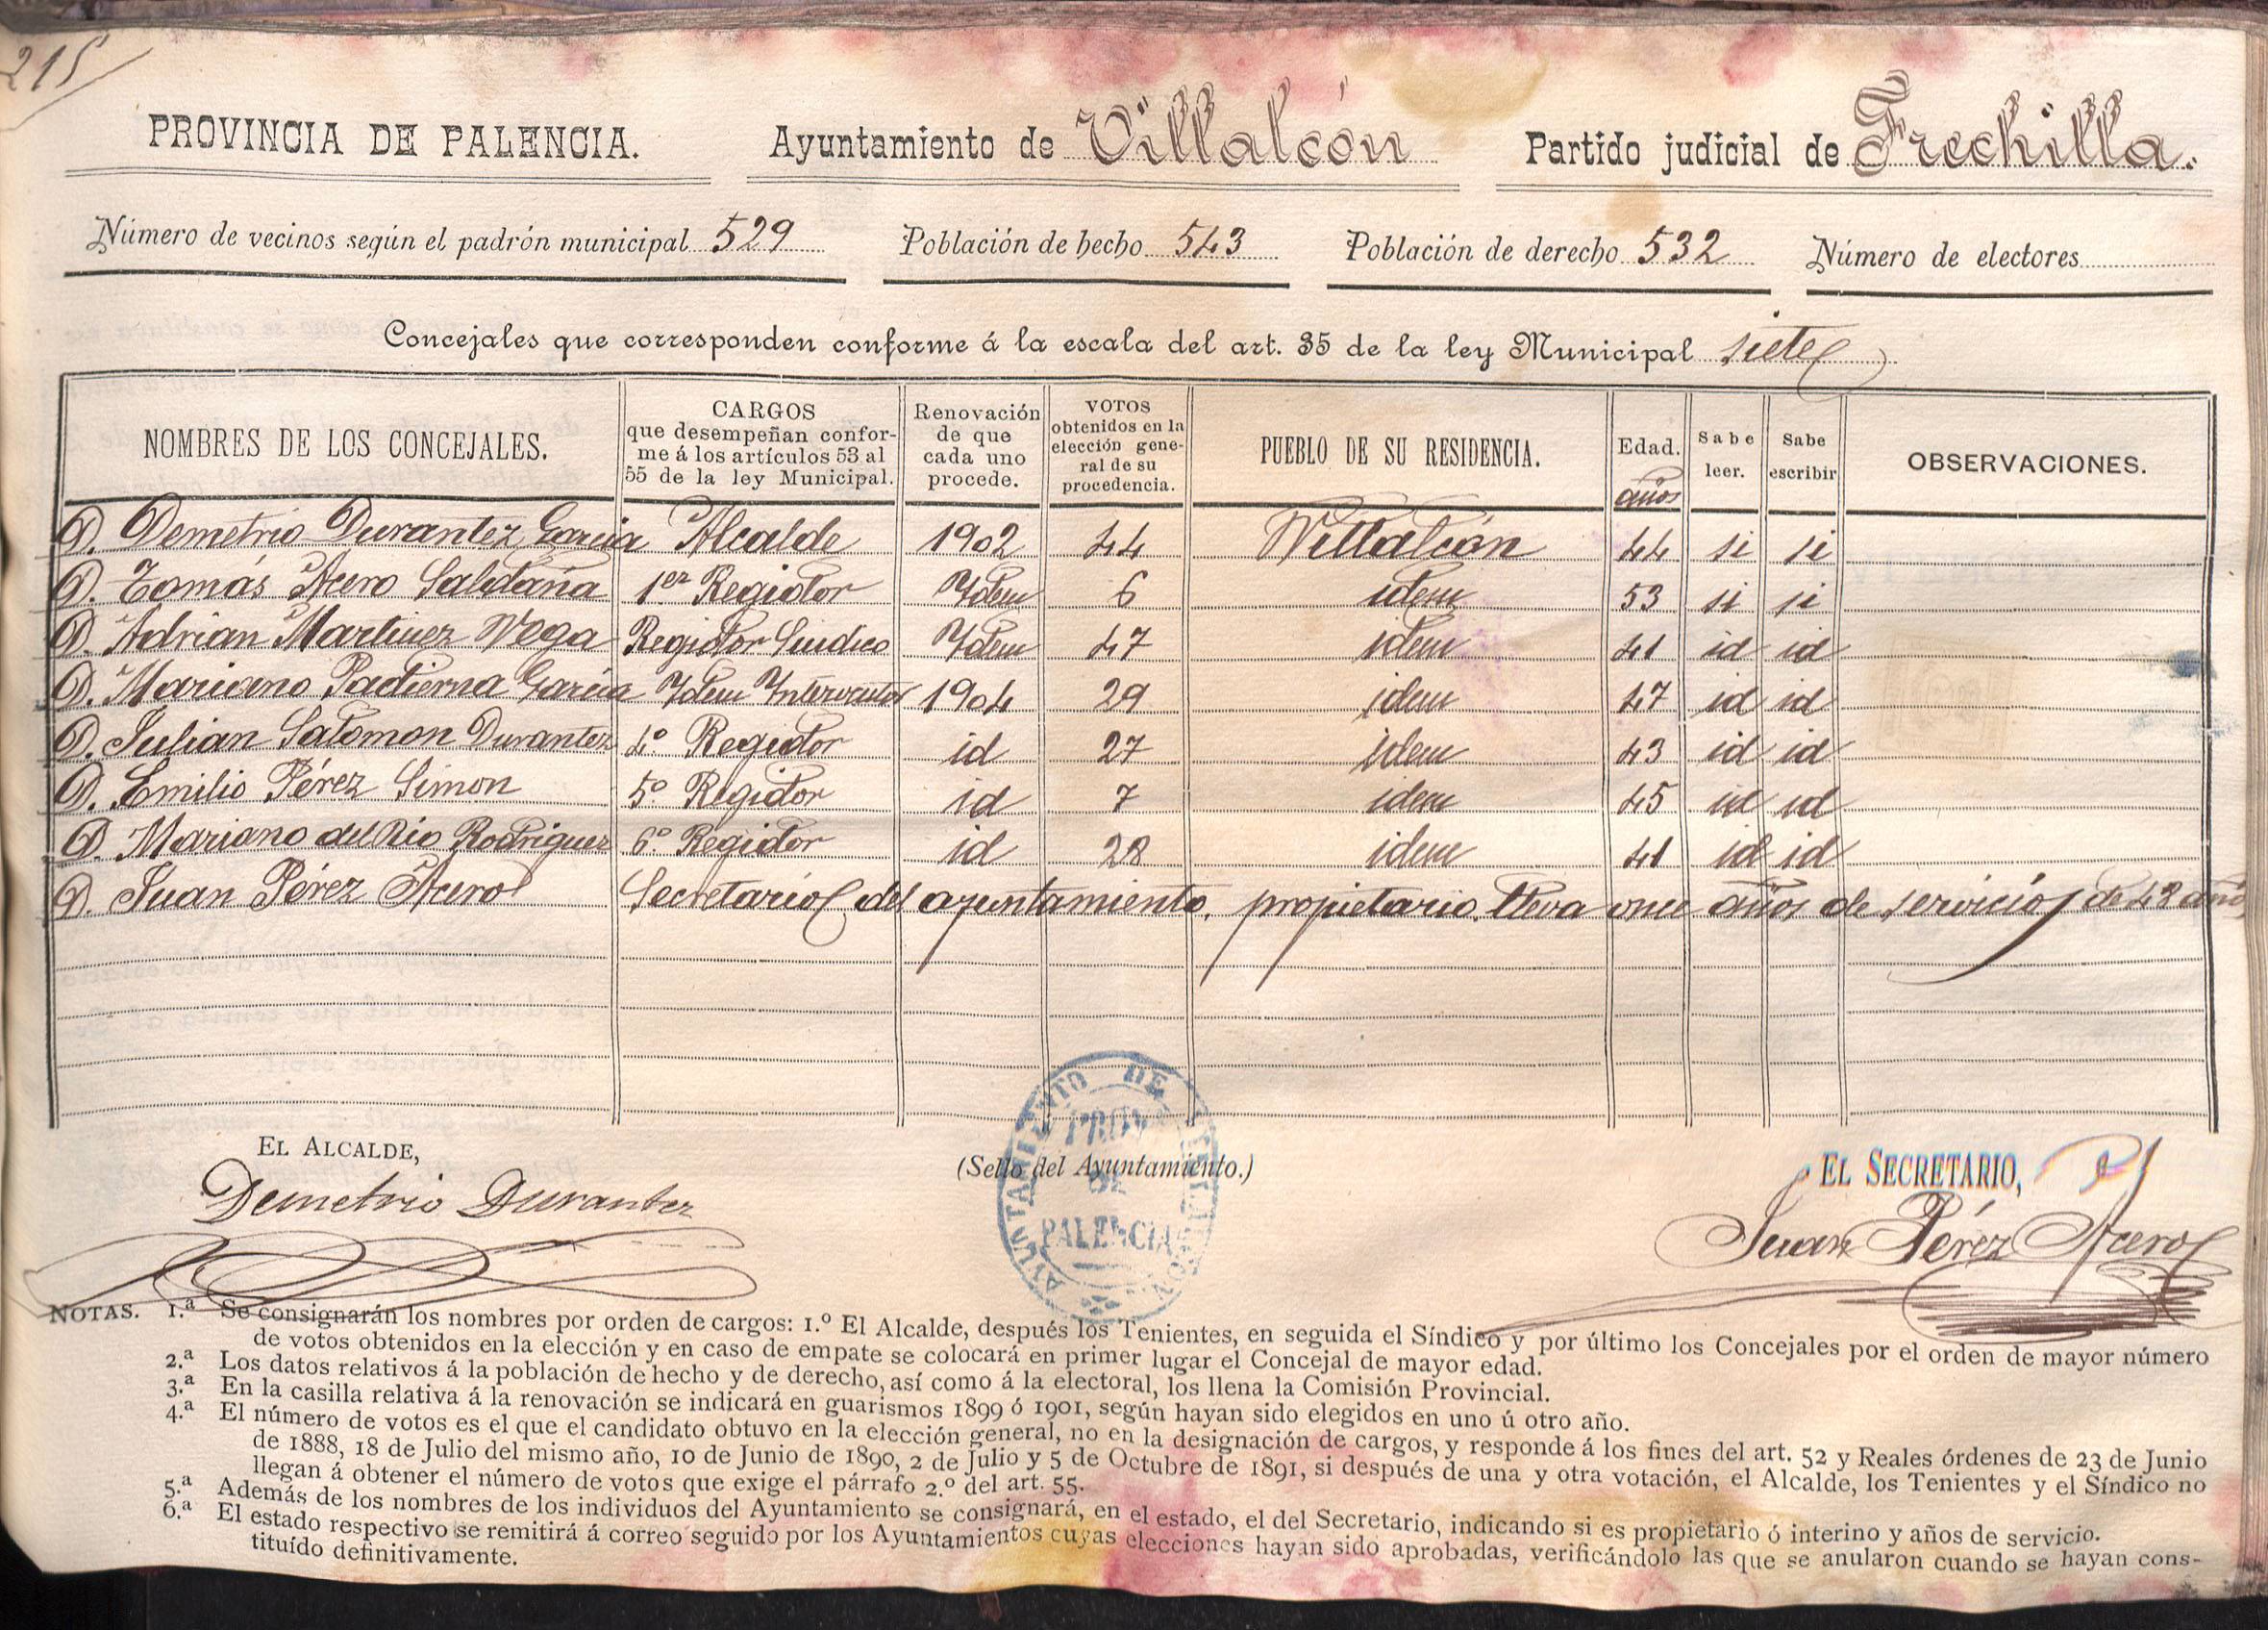 215
PROVINCIA DE PALENCIA. Ayuntamiento de Villalcón Partido judicial de Frechilla.
Número de vecinos según el padrón municipal 529 Población de hecho 543 Población de derecho 532 Número de electores
Concejales que corresponden conforme á la escala del art. 35 de la ley Municipal siete
NOMBRES DE LOS CONCEJALES.
CARGOS
que desempeñan confor-
me á los artículos 53 al
55 de la ley Municipal.
Renovación
de que
cada uno
procede.
VOTOS
obtenidos en la
elección gene-
ral de su
procedencia.
PUEBLO DE SU RESIDENCIA.
Edad.
años
Sabe
leer.
Sabe
escribir
OBSERVACIONES.
D. Demetrio Durantez Garcia Alcalde 1902 44 Villalcón 44 si si
D. Tomás Acero Saldaña 1er Regidor Ydem 6 idem 53 si si
D. Adrian Martinez Vega Regidor Sindico Ydem 47 idem 41 id id
D. Mariano Padierna Garcia Ydem Interventor 1904 29 idem 47 id id
D. Julian Salomon Durantez 4º Regidor id 27 idem 43 id id
D. Emilio Pérez Simon 5º Regidor id 7 idem 45 id id
D. Mariano del Rio Rodriguez 6º Regidor id 28 idem 41 id id
D. Juan Pérez Acero Secretario del ayuntamiento, propietario. lleva once años de servicios de 48 años
EL ALCALDE,
Demetrio Durantez
(Sello del Ayuntamiento.)
AYUNTAMIENTO DE VILLALCON
PROVA
DE
PALENCIA
EL SECRETARIO,
Juan Pérez Acero
NOTAS. 1.ª Se consignarán los nombres por orden de cargos: 1.º El Alcalde, después los Tenientes, en seguida el Síndico y por último los Concejales por el orden de mayor número
de votos obtenidos en la elección y en caso de empate se colocará en primer lugar el Concejal de mayor edad.
2.ª Los datos relativos á la población de hecho y de derecho, así como á la electoral, los llena la Comisión Provincial.
3.ª En la casilla relativa á la renovación se indicará en guarismos 1899 ó 1901, según hayan sido elegidos en uno ú otro año.
4.ª El número de votos es el que el candidato obtuvo en la elección general, no en la designación de cargos, y responde á los fines del art. 52 y Reales órdenes de 23 de Junio
de 1888, 18 de Julio del mismo año, 10 de Junio de 1890, 2 de Julio y 5 de Octubre de 1891, si después de una y otra votación, el Alcalde, los Tenientes y el Síndico no
llegan á obtener el número de votos que exige el párrafo 2.º del art. 55.
5.ª Además de los nombres de los individuos del Ayuntamiento se consignará, en el estado, el del Secretario, indicando si es propietario ó interino y años de servicio.
6.ª El estado respectivo se remitirá á correo seguido por los Ayuntamientos cuyas elecciones hayan sido aprobadas, verificándolo las que se anularon cuando se hayan cons-
tituído definitivamente.